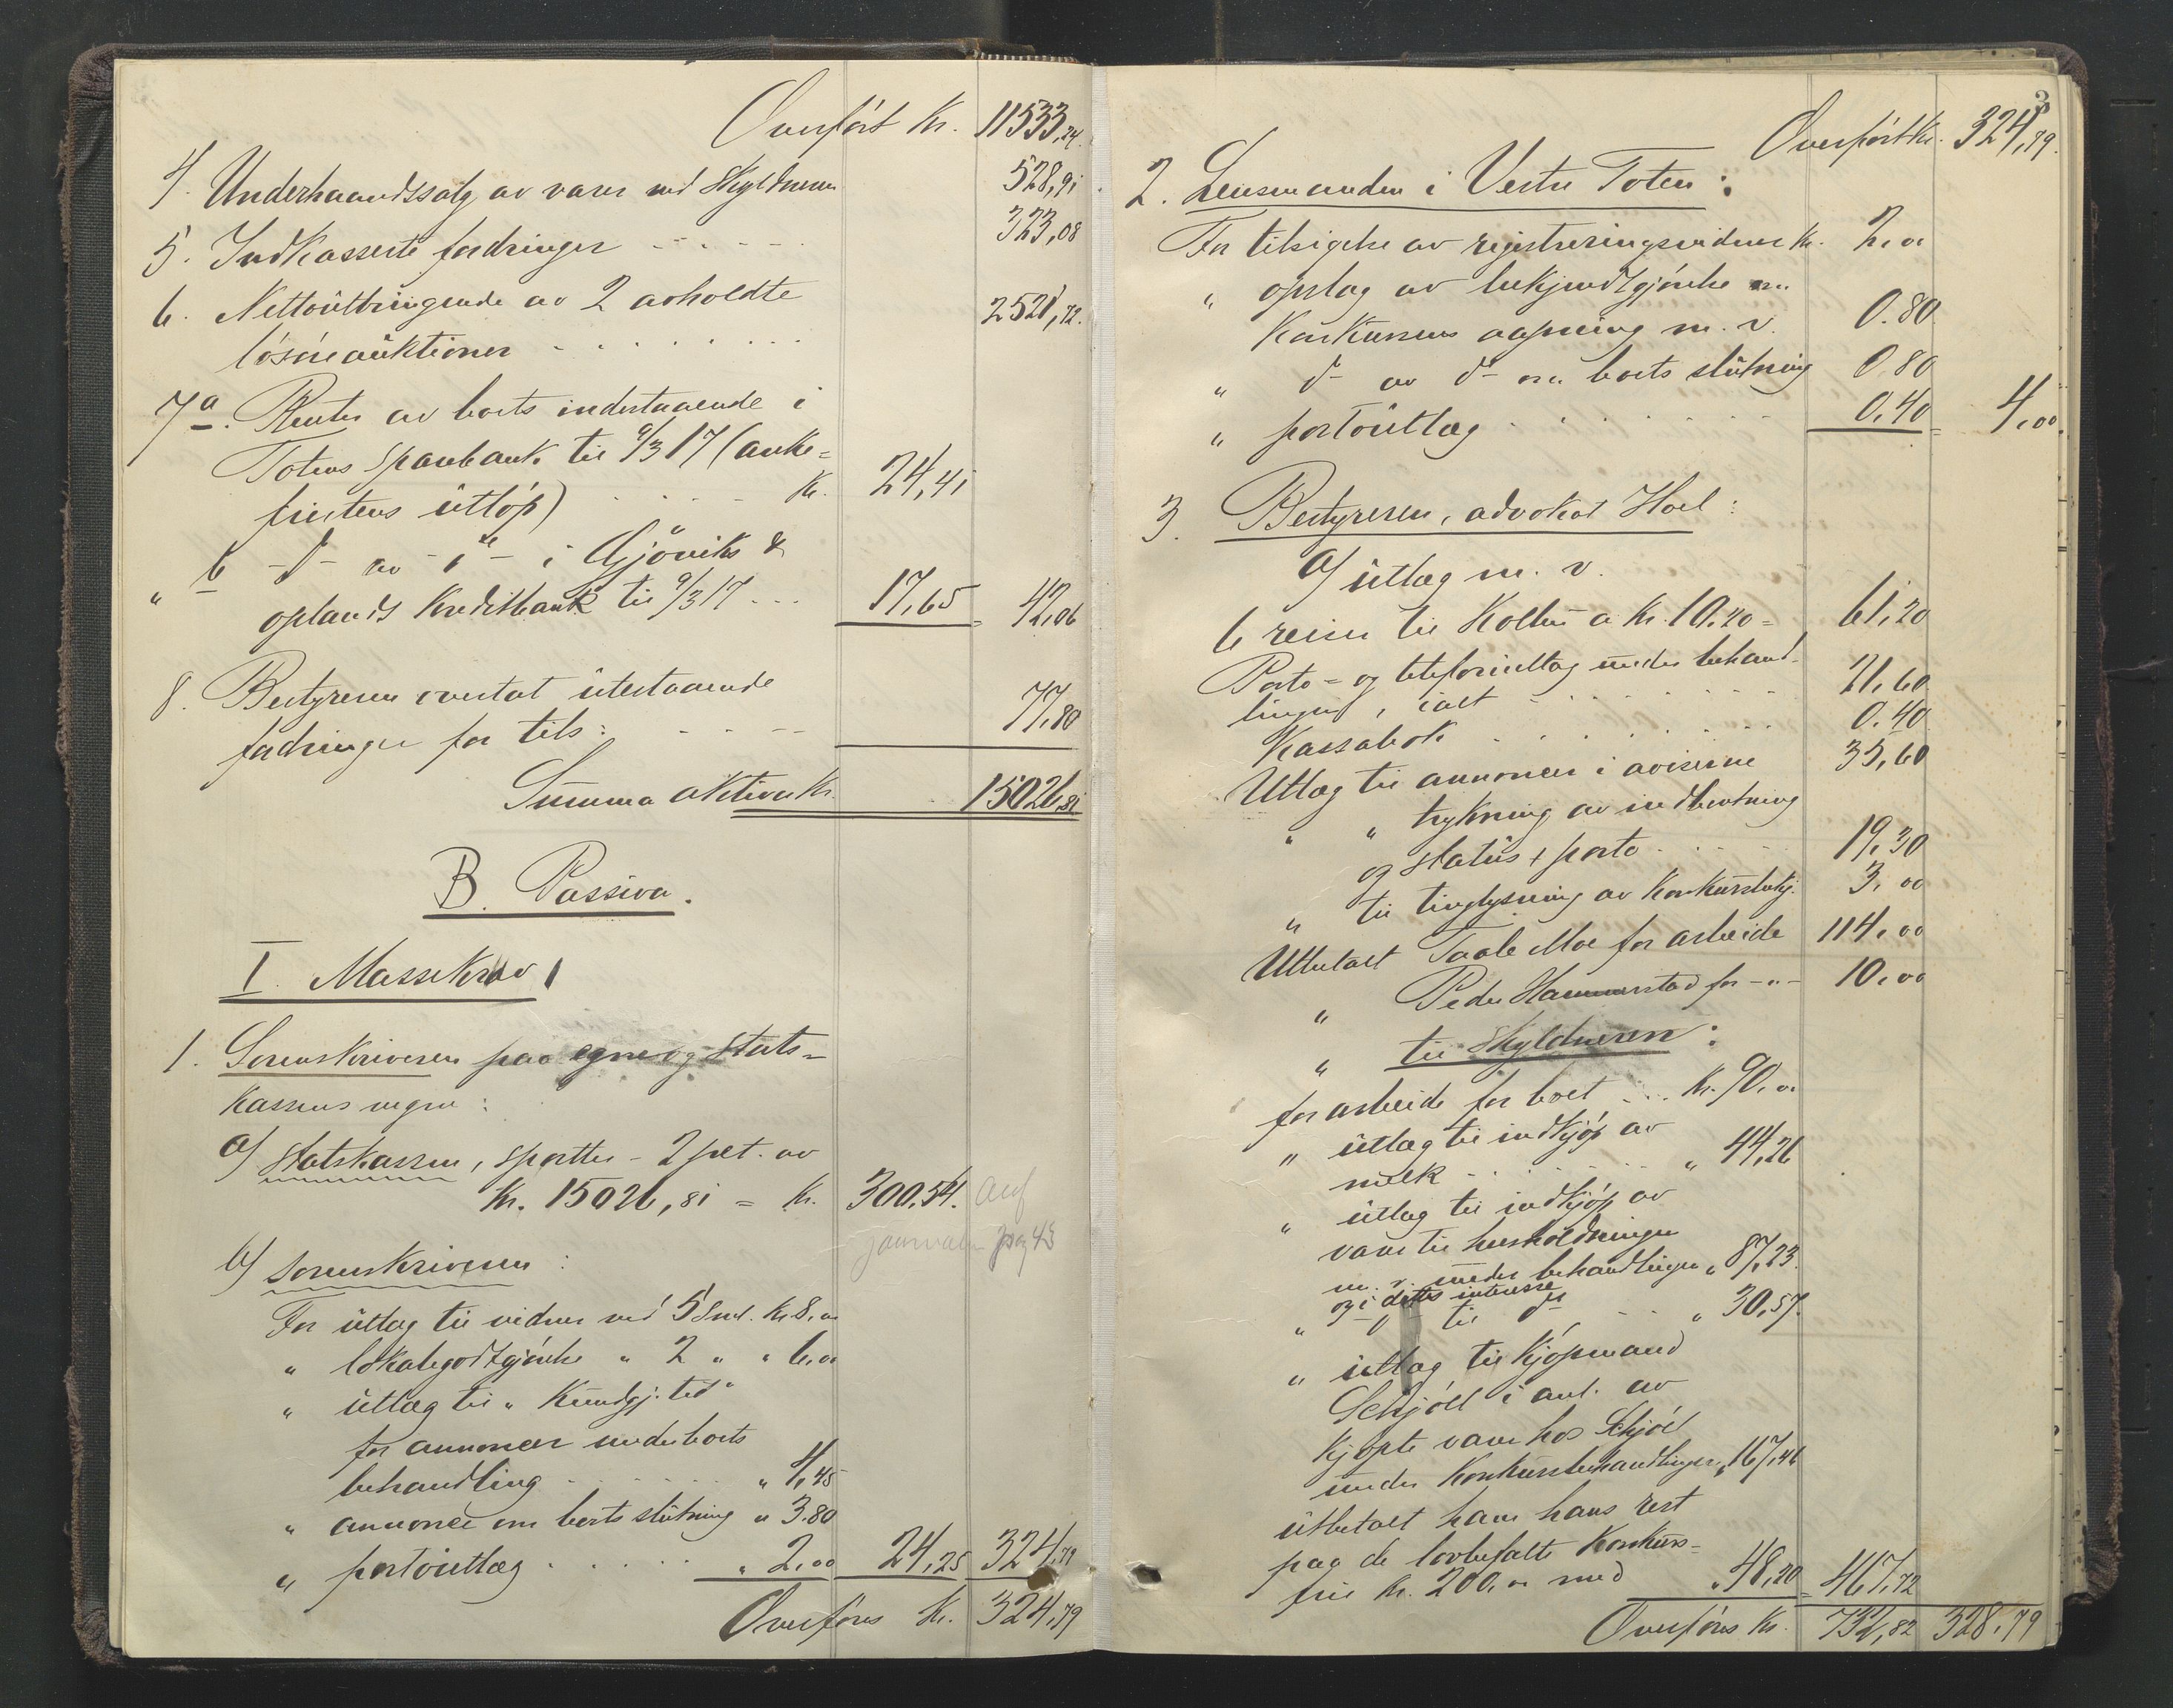 Overført Kr. 11533,24.
4. Underhaandssalg av varer ved Skyldneren 528,91
5. Indkasserte fordringer - - - - - 323,08
6. Nettoutbringende av 2 avholdte
løsøreauktioner . . . . . . . . . 2521,72.
7a. Renter av boets indestaaende i
Totens Sparebank til 9/3 17 (anke=
fristens utløp) . . . - - Kr. 24,41
" b -d- av -d- i Gjøviks &
oplands Kreditbank til 9/3 17 . . . 17,65 = 42,06
8. Bestyreren overtat utestaaende
fordringer for tils: - - - - 77,80
Summa aktiva Kr. 15026,81
B. Passiva.
I. Massekrav
1. Sorenskriveren paa egne og stats=
kassens vegne:
a) Statskassen, sportler - 2 pct. av
Kr. 15026,81 = Kr. 300,54.
journalen pag 43
b) sorenskriveren:
For utlæg til vidner ved 5 Sml. Kr. 8,00
" lokalegodtgjørelse " 2 " " 6,00
" utlæg til "Kundgj. tid"
for annoncer under boets
behandling . . . . . . . " 4,45
" annonce om boets slutning " 3.80
" portoutlæg . . . . . " 2,00 24,25 324,79
Overføres Kr. 324,79
3
Overført Kr. 324,79.
2. Lensmanden i Vestre Toten:
For tilsigelse av registreringsvidner Kr. 2,00
" opslag av bekjendtgjørelse om
Konkursens aapning m. v. 0.80
" d- av d- om boets slutning 0.80
" portoutlæg . . . . . . . 0,40 = 4,00.
3. Bestyreren, advokat Hoel:
a) utlæg m. v.
6 reiser til Kolbu a Kr. 10.20 = 61,20
Porto= og telefonutlæg under behand=
lingen, ialt . . . . . . . 21,60
Kassabok . . . . . . . . 0.40
Utlæg til annoncer i aviserne 35,60
" " trykning av indberetning
og status + porto . . . . 19,30
" til tinglysning av Konkursbekj. 3,00
Utbetalt Taale Moe for arbeide 114,00
" Peder Hammerstad for -"- 10,00
" til Skyldneren:
for arbeide for boet . . . Kr. 90,00
" utlæg til indkjøp av
melk . . . . . . . . " 44,26
" utlæg til indkjøp av
varer til husholdningen
m. v. under behandlingen " 87,23.
og i dettes interesse
" -d- til d- - - " 30,57.
" utlæg til Kjøpmand
Schjøll i anl. av
Kjøpte varer hos Schjøll
under Konkursbehandlingen " 167,46
utbetalt ham hans rest
paa de lovbefalte Konkurs=
frie Kr. 200,00 med " 48,20 = 467,72
Overføres Kr. 732,82 328,79